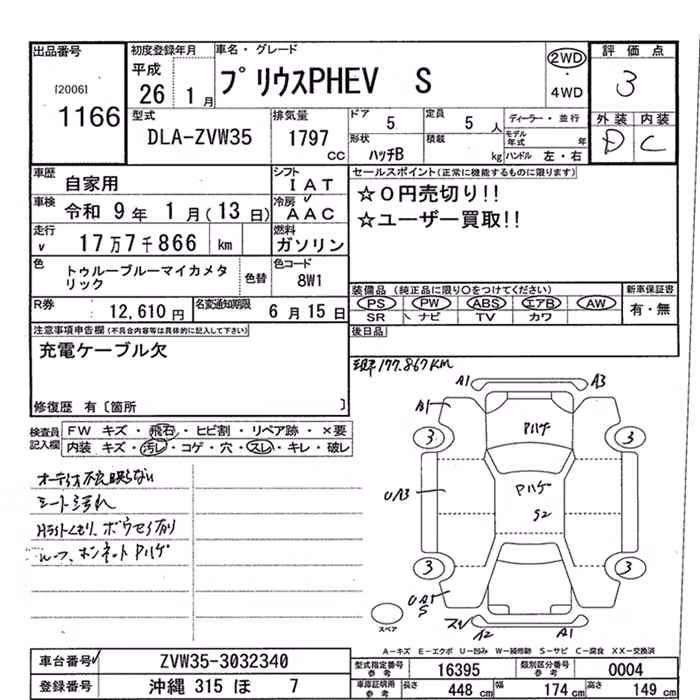 出品番号 初度登録年月 車名・グレード 評価点
[2006] 平成 プリウスPHEV S 2WD ・ 4WD 3
1166 26 1月
型式 排気量 ドア 5 定員 5人 ディーラー・並行 外装 内装
DLA-ZVW35 1797cc 形状 ハッチB 積載 kg モデル年式 年 D C
ハンドル 左・右
車歴 自家用 シフト IAT セールスポイント(正常に機能するものに限ります)
車検 令和 9年 1月(13日) 冷房 AAC ☆0円売切り!!
走行 17万7千866 km 燃料 ガソリン ☆ユーザー買取!!
色 トゥルーブルーマイカメタリック 色替 色コード 8W1
装備品(純正品に限り○をつけてください) 新車保証書
PS PW ABS エアB AW 有・無
SR ナビ TV カワ
R券 12,610円 名変通知期限 6月15日
注意事項申告欄(不具合内容等は具体的に記入して下さい) 後日品
充電ケーブル欠
177.867KM
修復歴 有[箇所 ]
検査員記入欄 FW キズ・飛石・ヒビ割・リペア跡・×要
内装 キズ・汚レ・コゲ・穴・スレ・キレ・破レ
A1 A3
B1
3 3
Pハゲ
UA3
Pハゲ
S2
3 3
S
A2 A1
オーディオ不良映らない
シート汚れ
ボンネットPハゲ
スペア
A-キズ E-エクボ U-凹み W-補修跡 S-サビ C-腐食 XX-交換済
車台番号 ZVW35-3032340 型式指定番号 参考 16395 類別区分番号 参考 0004
登録番号 沖縄 315 ほ 7 車庫証明用 参考 長さ 448cm 幅 174cm 高さ 149cm